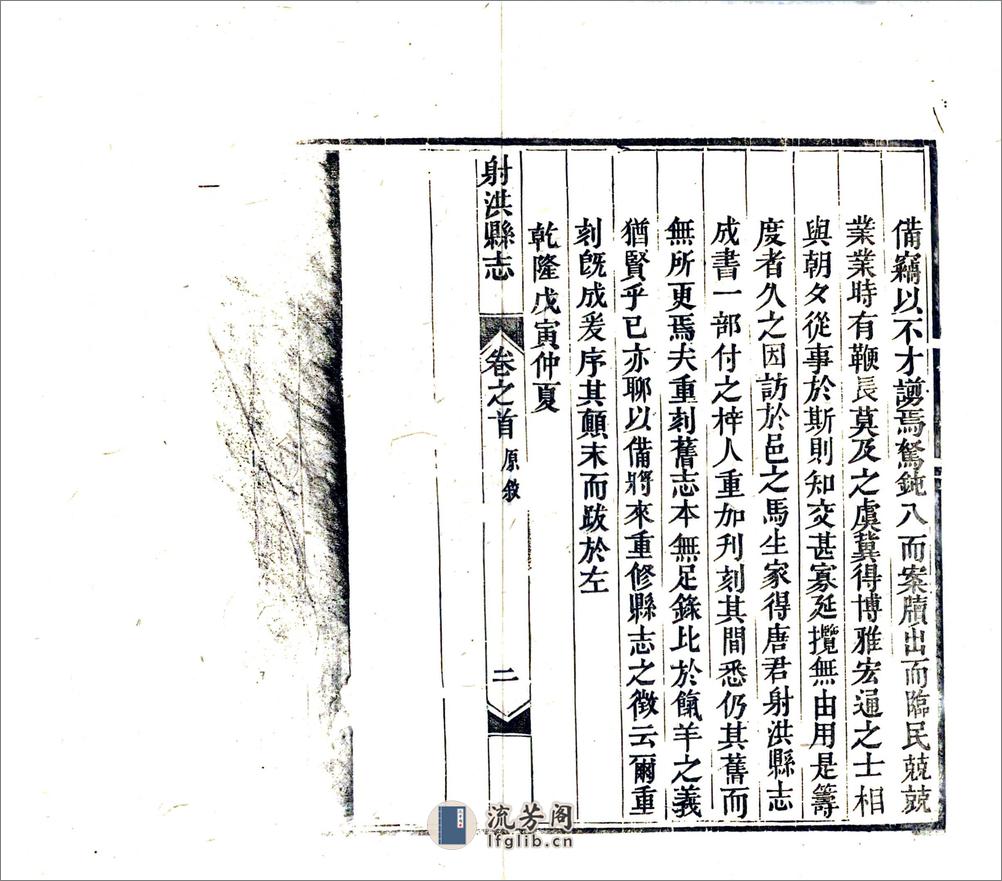 備竊以不才謭焉駑鈍入而案牘出而臨民兢兢
業業時有鞭長莫及之虞冀得博雅宏通之士相
與朝夕從事於斯則知交甚寡延攬無由用是籌
度者久之因訪於邑之馬生家得唐君射洪縣志
成書一部付之梓人重加刋刻其間悉仍其舊而
無所更焉夫重刻舊志本無足錄比於餼羊之義
猶賢乎已亦聊以備將來重修縣志之徵云爾重
刻旣成爰序其顛末而跋於左
乾隆戊寅仲夏
射洪縣志 卷之首 原敘 二
流芳阁
lfglib.cn